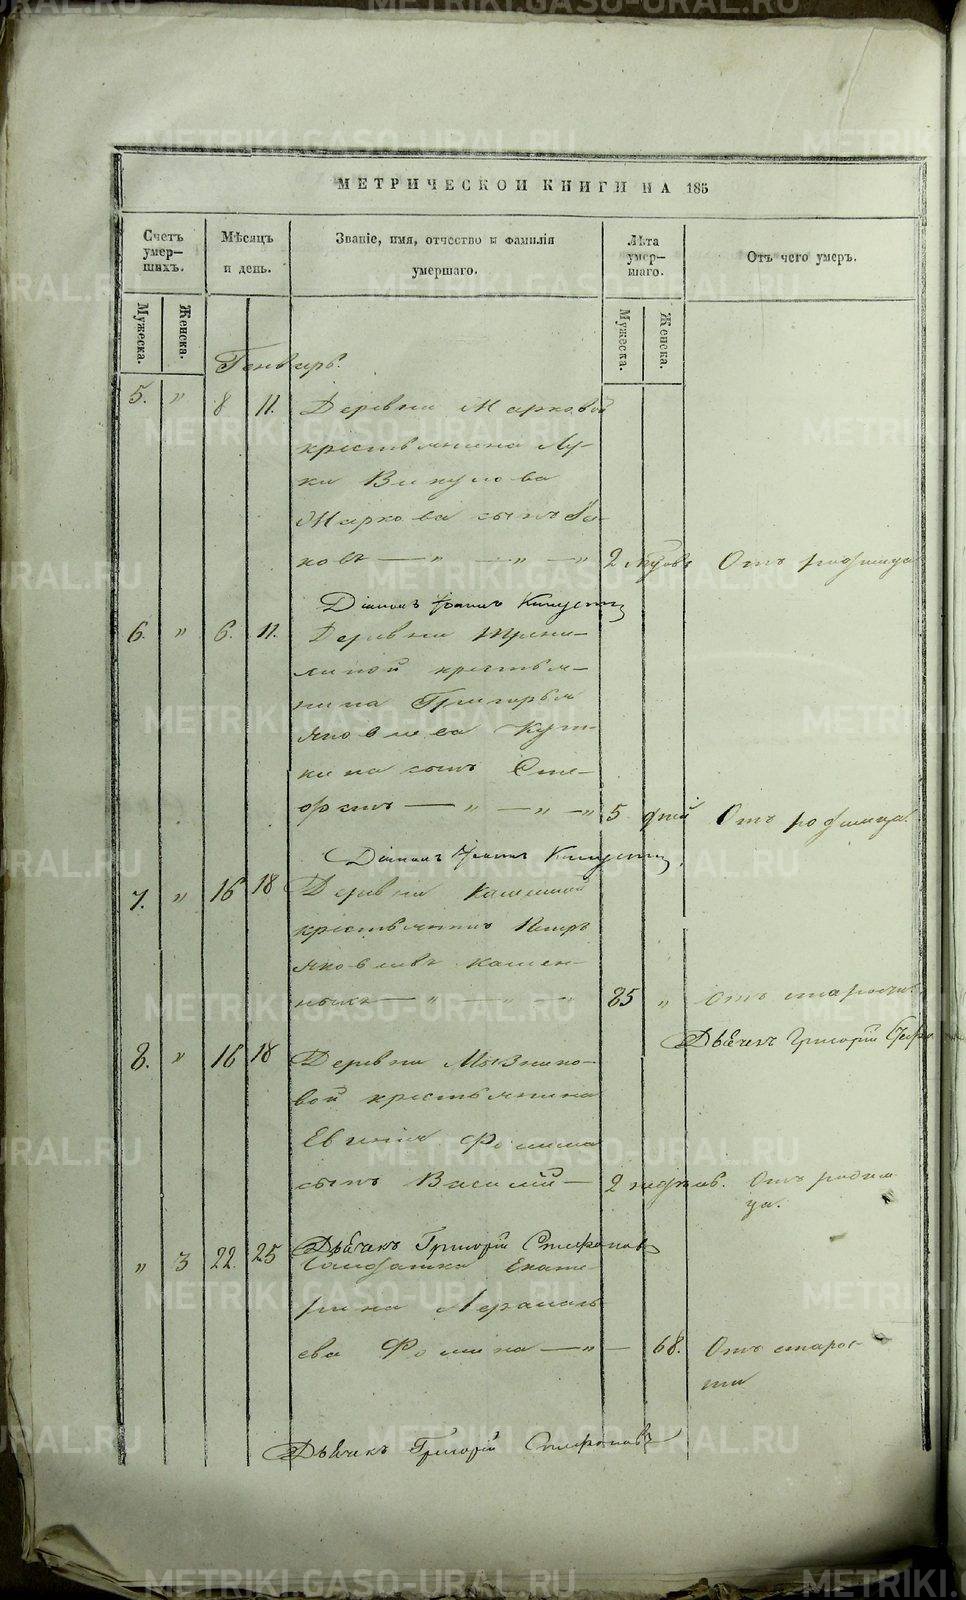 МЕТРИЧЕСКОЙ КНИГИ НА 185
Счетъ умер-
шихъ.
Мѣсяцъ
и день.
Званіе, имя, отчество и фамилія
умершаго.
Лѣта
умер-
шаго.
Отъ чего умеръ.
Мужеска.
Женска.
Мужеска.
Женска.
Генварь.
5. " 8 11. Деревни Марковой
крестьянина Лу-
ки Викулова
Маркова сынъ Я-
ковъ — " — " — " 2 Отъ родимца
Діаконъ Іоаннъ
6. " 6. 11. Деревни
линой крестья-
нина Григорья
Яковлева
кина сынъ Сте-
фанъ — " — " — " 5 дней Отъ родимца.
Діаконъ Іоаннъ
7. " 16 18 Деревни
крестьянинъ Петръ
Яковлевъ Камен-
ныхъ — " — " — " 85 " Отъ старости.
Дьячекъ Григорій
8. " 16 18 Деревни
вой крестьянина
Евгенія Фомина
сынъ Василій — 2 Отъ родим
ца.
Дьячекъ Григорій Стефановъ
" 3 22. 25 Солдатка Екате-
рина
ева Фомина — " — 68. Отъ старос-
ти
Дьячекъ Григорій Стефановъ
METRIKI.GASO-URAL.RU